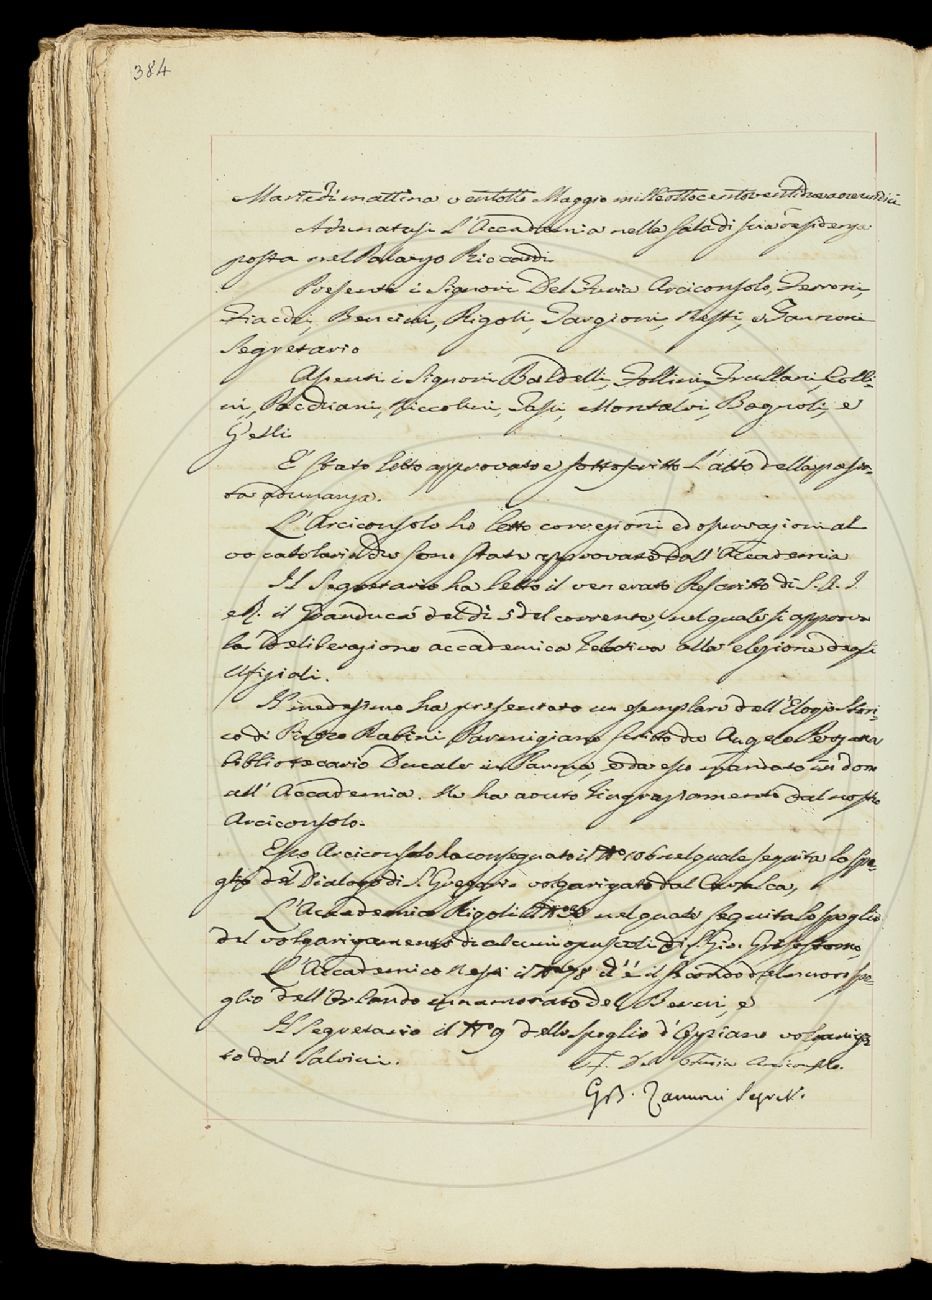 384
Martedì mattina ventotto Maggio milleottocentoventidue a ore undici
Adunatasi l'Accademia nella sala di sua residenza
posta nel Palazzo Riccardi
Presenti i Signori Del Furia Arciconsolo, Ferroni,
Fiacchi, Bencini, Rigoli, Targioni, Nesti, e Zannoni
Segretario
Assenti i Signori Baldelli, Follini, Frullani, Colli-
ni, Pacchiani, Niccolini, Sassi, Montalvi, Bagnoli, e
Gelli
E' stato letto approvato e sottoscritto l'atto della passa-
ta adunanza.
L'Arciconsolo ha letto correzioni ed osservazioni al
vocabolario che sono state approvate dall'Accademia
Il Segretario ha letto il venerato Rescritto di S. A. I.
e R. il Granduca del dì 5 del corrente, nel quale si approva
la deliberazione accademica relativa alla elezione degli
Ufiziali.
Il medesimo ha presentato un esemplare dell'Elogio stori-
co di Rabini Parmigiano scritto da Angelo Pezzana
bibliotecario Ducale in Parma, e da esso mandato in dono
all'Accademia. Ne ha avuto ringraziamento dal nostro
Arciconsolo.
Esso Arciconsolo ha consegnato il N.o 106 nel quale seguita lo spo-
glio del Dialogo di S. Gregorio volgarizzato dal Cavalca,
L'Accademico Rigoli il N.o nel quale seguita lo spoglio
del volgarizzamento di alcuni opuscoli di S. Gio. Grisostomo,
L'Accademico Nesti il N.o 78 ch'è il secondo del nuovo spo-
glio dell'Orlando innamorato del Berni, e
Il Segretario il N.o 9 dello spoglio d'Oppiano volgarizza-
to dal Salvini.
F. Del Furia Arciconsolo.
GB. Zannoni Segret.